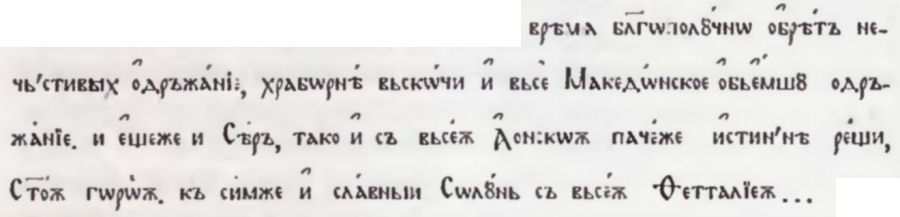 врѣмѧ бл҃гѡполꙋ́чнѡ ѻ҆брѣ́тъ не-
чь'стивыⷯ ѻ҆дръжа́нїе, храбѡрнѣ̀ вьскѡ́чи и҆̀ вьсѐ Македѡ́нское ѻ҆бье́мшꙋ одръ-
жа́нїе. и е҆́щеже и Сѣ́ръ, тако и҆̀ съ вьсе́ѫ Дон:кѡѫ паче́же и҆́стин'нѣ рещи,
Ст҃о́ѫ гѡрѡ̀ѫ. къ си́мже и҆̀ сла́вныи Сѡлꙋ́нь съ вьсе́ѫ Ѳетталїеѫ...